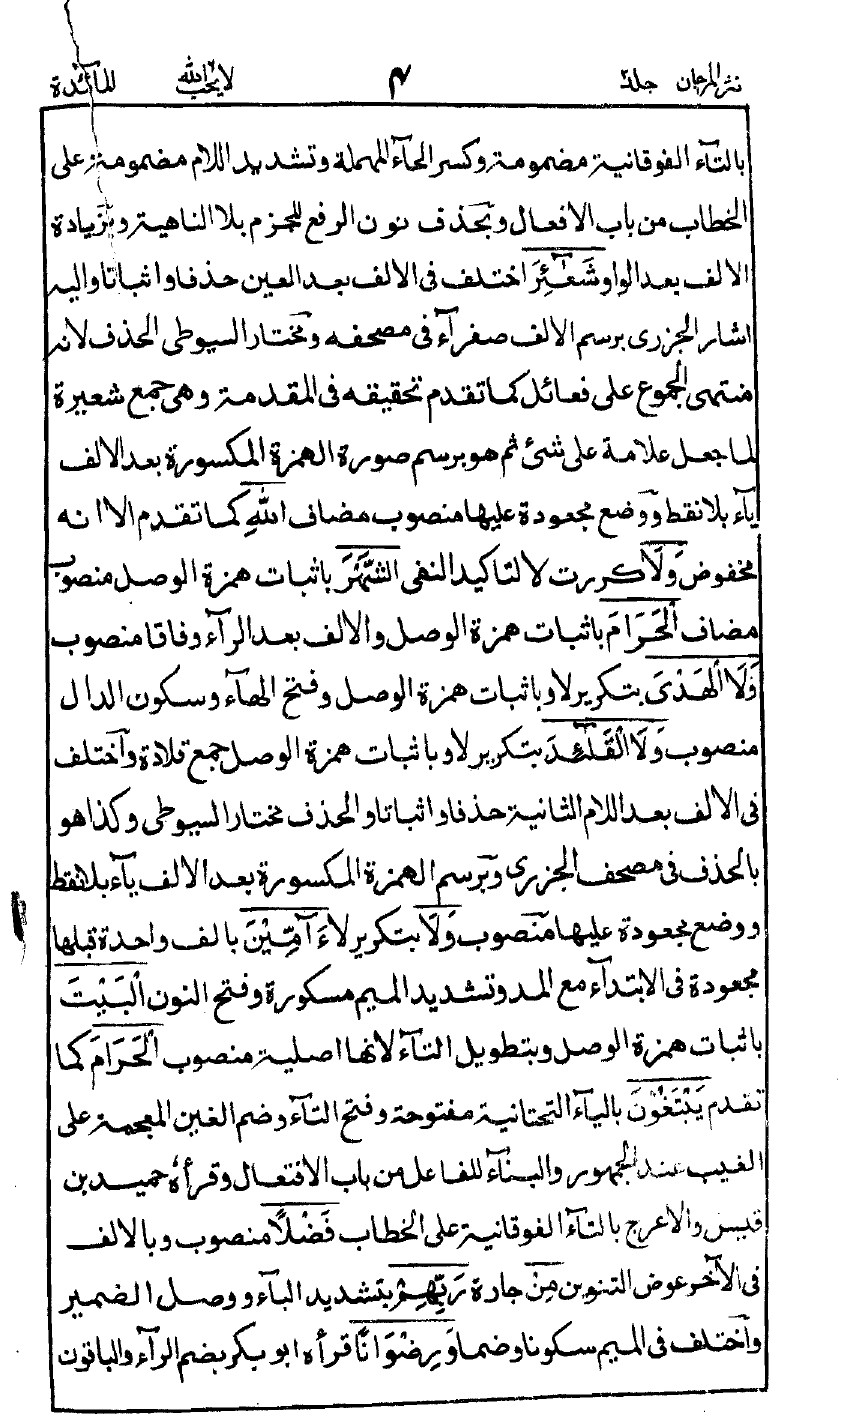 نثر المرجان جلد ٢ ٤ لا يحب الله المآئدة
بالتآء الفوقانية مضمومة وكسر الحآء المهملة وتشديد اللام مضمومة على
الخطاب من باب الافعال وبحذف نون الرفع للجزم بلا الناهية وبزيادة
الالف بعد الواو شَعَٰٓئِرَ اختلف فى الالف بعد العين حذفا واثباتا واليه
اشار الجزرى برسم الالف صفرآء فى مصحفه ومختار السيوطى الحذف لانه
منتهى الجموع على فعائل كما تقدم تحقيقه فى المقدمة وهى جمع شعيرة
لما جعل علامة على شئ ثم هو برسم صورة الهمزة المكسورة بعد الالف
يآء بلا نقط ووضع مجعودة عليها منصوب مضاف اللّٰهِ كما تقدم الا انه
مخفوض وَلَا كررت لا لتاكيد النفى الشَّهْرَ باثبات همزة الوصل منصوب
مضاف الْحَرَامَ باثبات همزة الوصل والالف بعد الرآء وفاقا منصوب
وَلَا الْهَدْىَ بتكرير لا وباثبات همزة الوصل وفتح الهآء وسكون الدال
منصوب وَلَا الْقَلَٰٓئِدَ بتكرير لا وباثبات همزة الوصل جمع قلادة واختلف
فى الالف بعد اللام الثانية حذفا واثباتا والحذف مختار السيوطى وكذا هو
بالحذف فى مصحف الجزرى وبرسم الهمزة المكسورة بعد الالف يآء بلا نقط
ووضع مجعودة عليها منصوب وَلَا بتكرير لا ءَآمِّيْنَ بالف واحدة قبلها
مجعودة فى الابتدآء مع المد وتشديد الميم مسكورة وفتح النون الْبَيْتَ
باثبات همزة الوصل وبتطويل التآء لانها اصلية منصوب الْحَرَامَ كما
تقدم يَبْتَغُوْنَ باليآء التحتانية مفتوحة وفتح التآء وضم الغين المعجمة على
الغيب عند الجمهور والبنآء للفاعل من باب الافتعال وقرأه حميد بن
قيس والاعرج بالتآء الفوقانية على الخطاب فَضْلًا منصوب وبالالف
فى الآخر عوض التنوين مِنْ جارة رَبِّهِمْ بتشديد البآء ووصل الضمير
واختلف فى الميم سكونا وضما وَرِضْوَانًا قرأه ابو بكر بضم الرآء والباقون